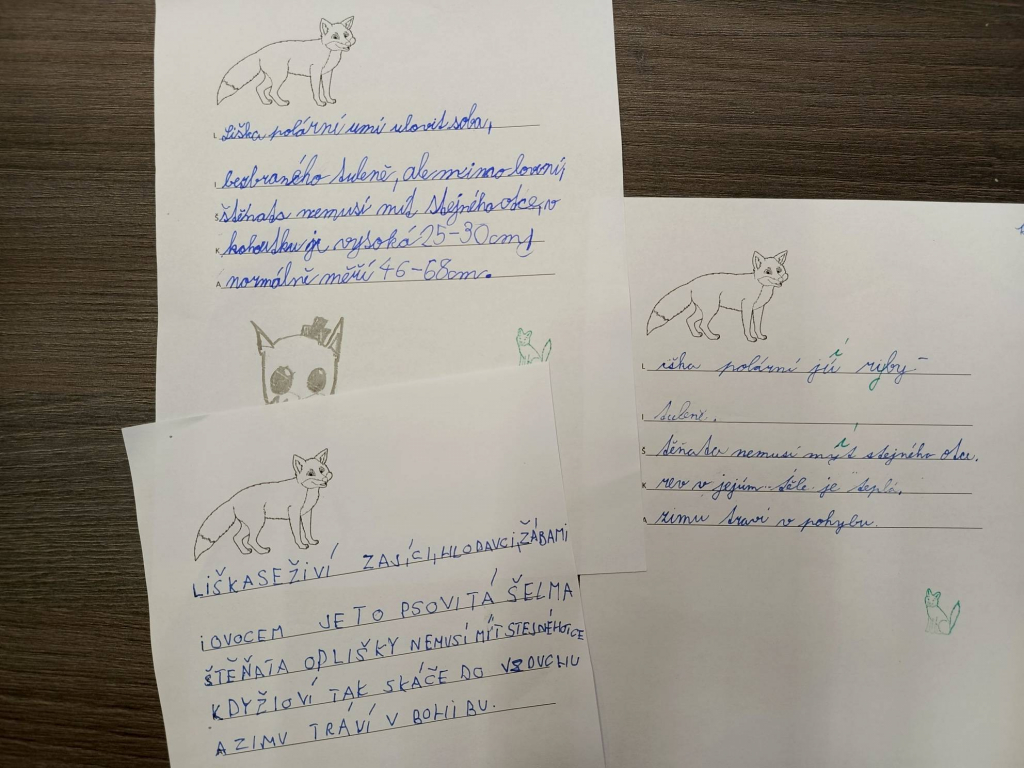 L Liška polární umí ulovit soba,
I bezbraného tuleně, ale mimo lovní,
S štěňata nemusí mít stejného otce, v
K kohoutku je vysoká 25-30cm,
A normálně měří 46-68cm.
L iška polární jí ryby
I tuleně.
S těňata nemusí mít stejného otce.
K rev v jejím těle je teplá.
A zimu traví v pohybu.
LIŠKA SE ŽIVÍ ZAJÍCI, HLODAVCI, ŽÁBAMI
I OVOCEM JE TO PSOVITÁ ŠELMA
ŠTĚŇATA OD LIŠKY NEMUSÍ MÍT STEJNÉHO OTCE
KDYŽ LOVÍ TAK SKÁČE DO VZDUCHU
A ZIMU TRÁVÍ V BOHIBU.